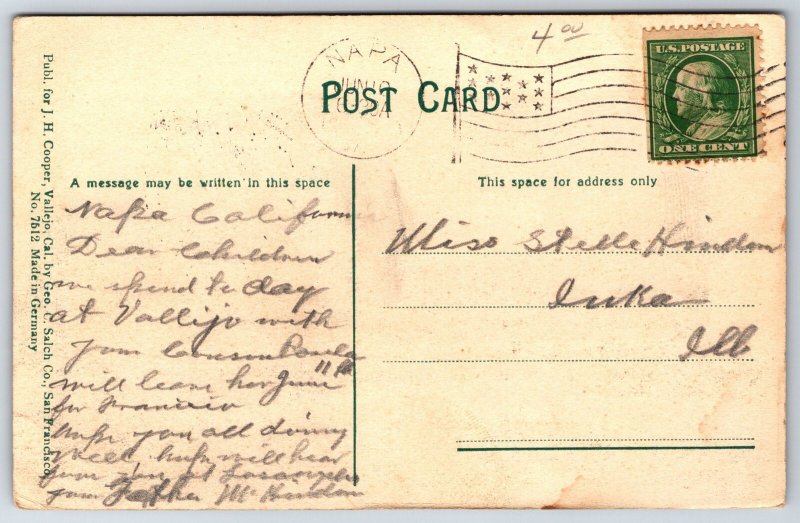 4 00
NAPA
JUN 10
U.S. POSTAGE
ONE CENT
POST CARD
A message may be written in this space
This space for address only
Napa California
Dear Children
we spend to day
at Vallijo with
your
will leave her June 11th
for Francisco
hope you all doing
well hope will hear
from you at
your Father
Miss Stelle Hindon
Inka
Ill
Publ. for J. H. Cooper, Vallejo, Cal. by Geo. C. Salch Co., San Francisco,
No. 7512 Made in Germany